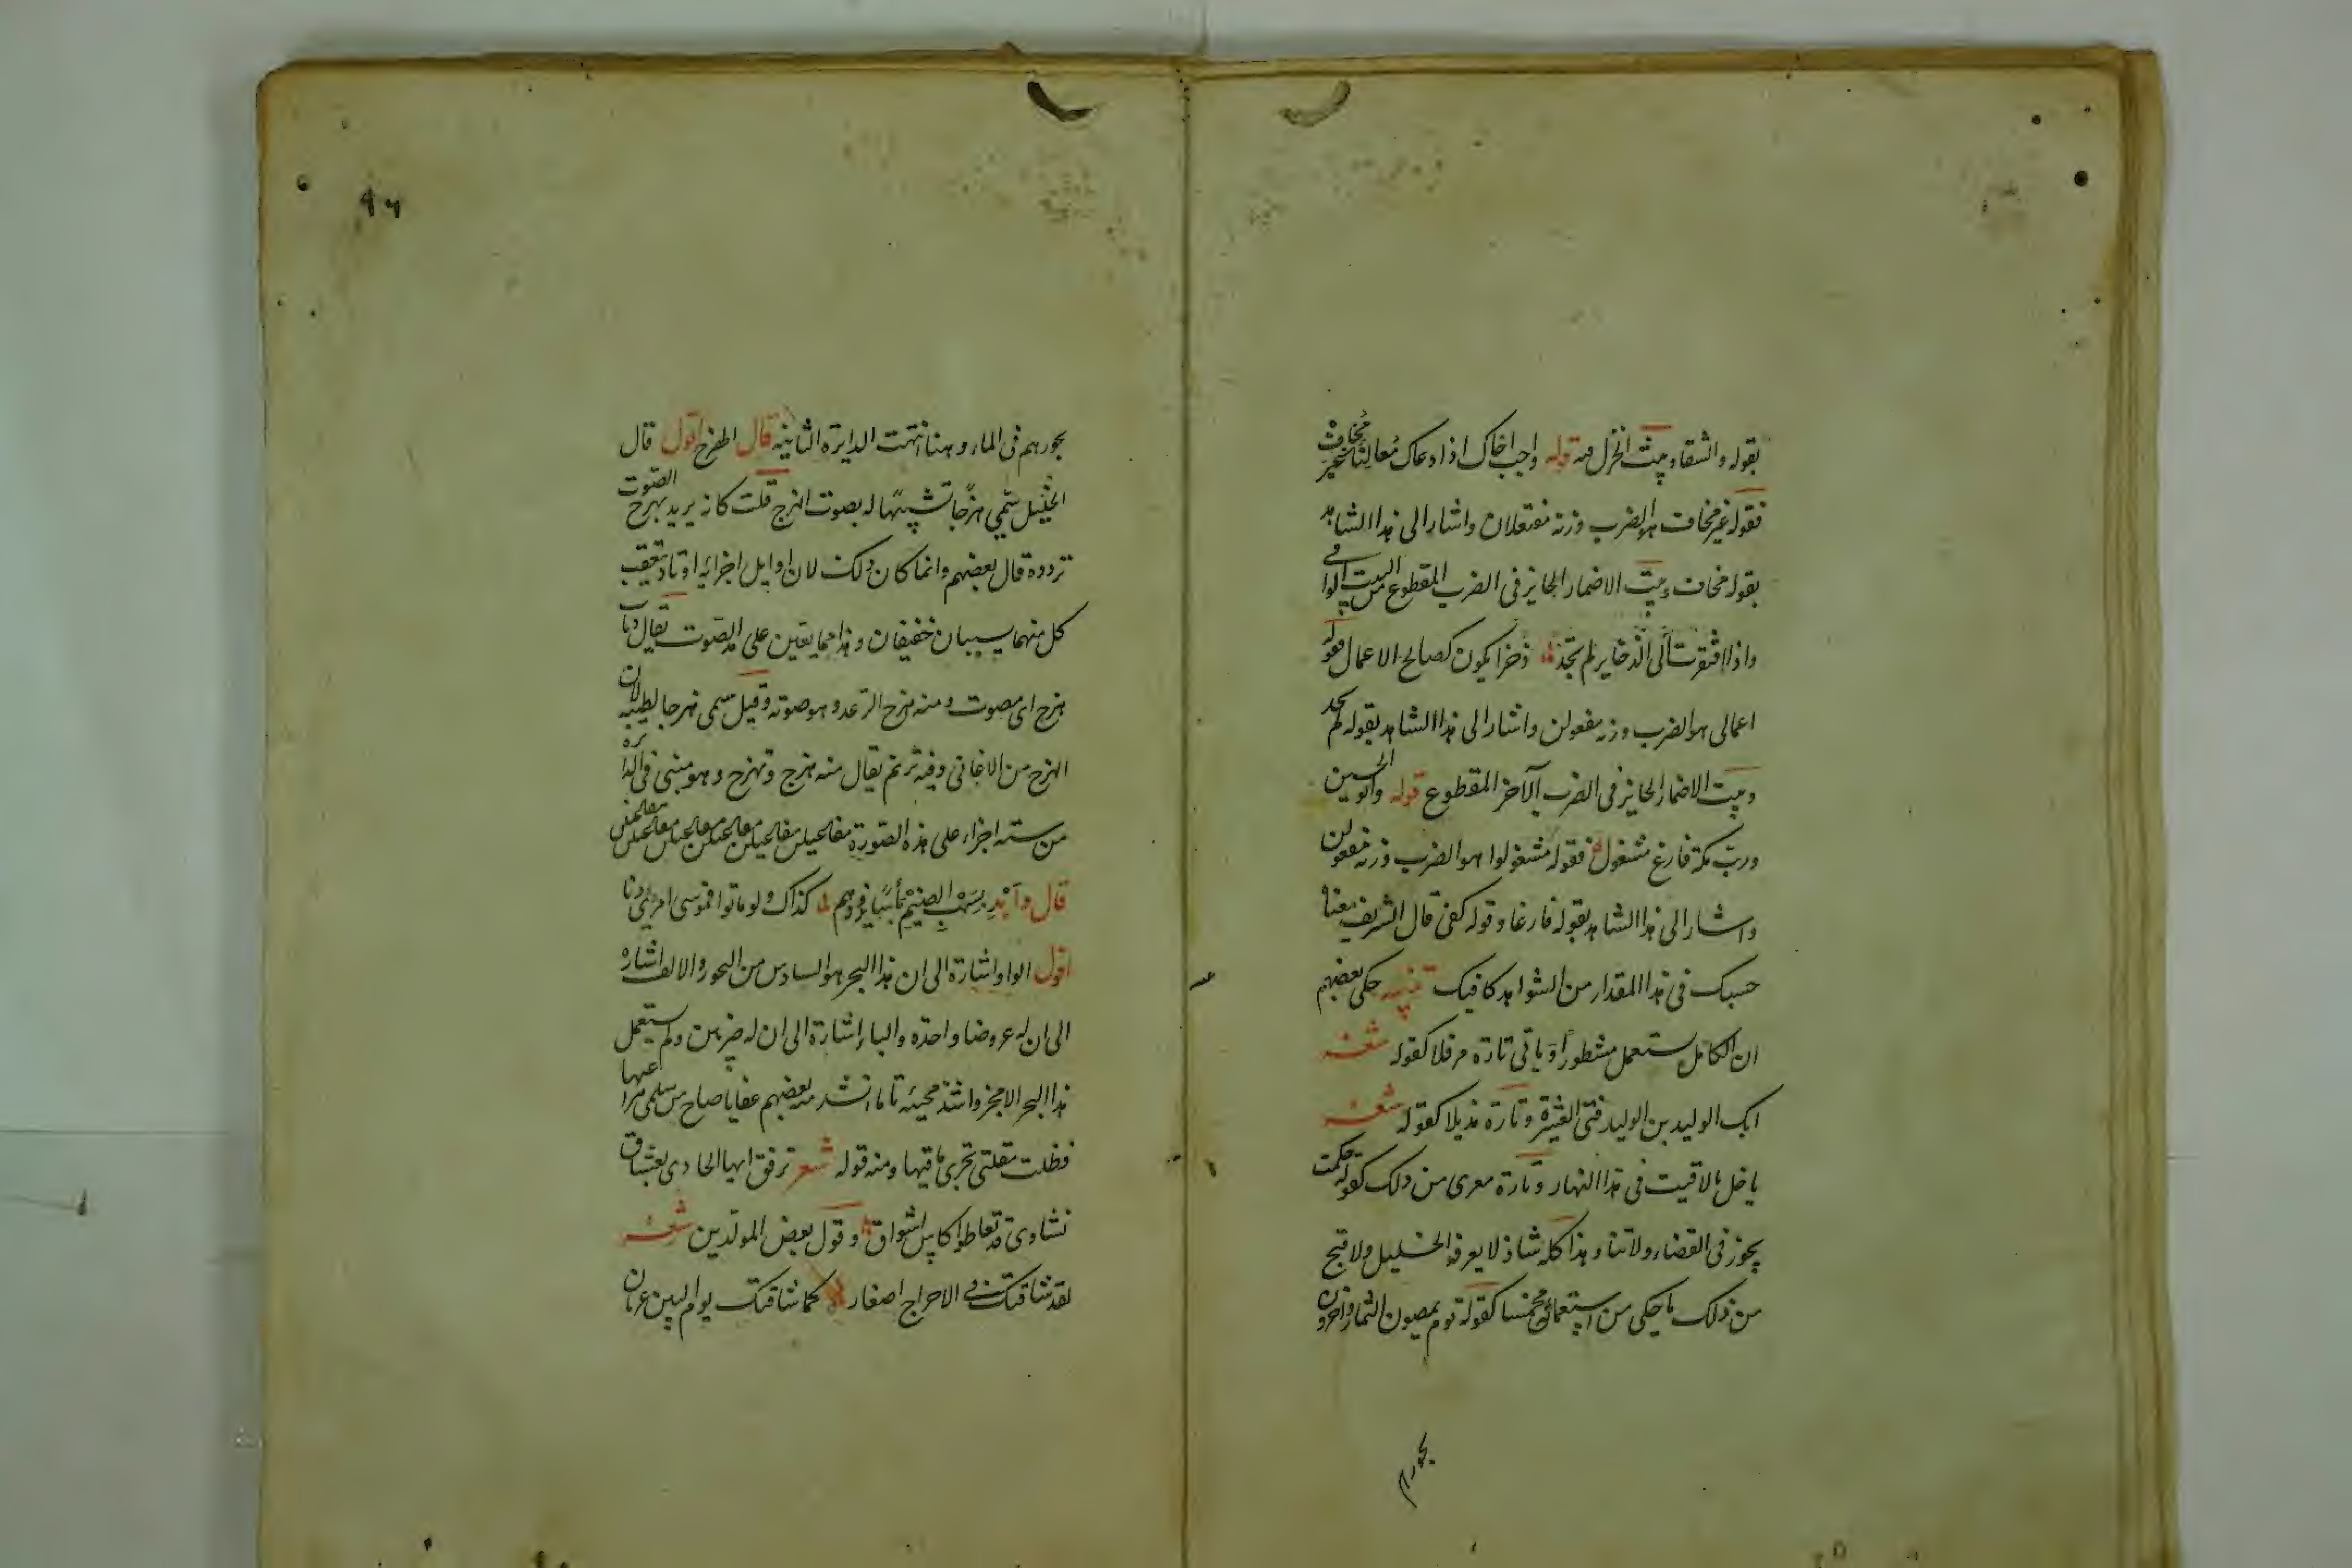 بقوله والشقاء وبيت الخزل منه قوله واجب اخاك اذا دعاك معالنا غير مخاف
فقوله غير مخاف هو الضرب وزنه مفتعلان واشار الى هذا الشاهد
بقوله مخاف وبيت الاضمار الجايز فى الضرب المقطوع من البيت الوافى
واذا افتقرت الى الذخاير لم تجد ذخرا يكون كصالح الاعمال فقوله
اعمالى هو الضرب وزنه مفعولن واشار الى هذا الشاهد بقوله لم تجد
وبيت الاضمار الجايز فى الضرب الآخر المقطوع قوله وابو الحسين
ورب مكة فارغ مشغول فقوله مشغولوا هو الضرب وزنه مفعولن
واشار الى هذا الشاهد بقوله فارغا وقوله كفى قال الشريف معناه
حسبك فى هذا المقدار من الشواهد كافيك تنبيه حكى بعضهم
ان الكامل يستعمل مشطورا وياتى تارة مرفلا كقوله شعر
ابك الوليد بن الوليد فتى العشيرة وتارة مذيلا كقوله شعر
يا خل ما لاقيت فى هذا النهار وتارة معرى من ذلك كقوله حكمت
بجوز فى القضاء ولاتنا وهذا كله شاذ لا يعرفه الخليل ولا قبح
من ذلك ما حكى من استعماله مخمسا كقوله قوم يمصون الثماد وآخرون
بحورهم
٩٦
بحورهم فى الماء وهنا انتهت الدايرة الثانية قال الهزج اقول قال
الخليل سمى هزجا تشبيها له بصوت الهزج قلت كانه يريد بهزج الصوت
تردده قال بعضهم وانما كان ذلك لان اوايل اجزايه اوتاد تعقب
كل منهما سببان خفيفان وهذا مما يعين على مد الصوت يقال ذباب
هزج اى مصوت ومنه هزج الرعد وهو صوته وقيل سمى هزجا لطيبه لان
الهزج من الاغانى وفيه ترنم يقال منه هزج وتهزج وهو مبنى فى الدايره
من ستة اجزاء على هذه الصورة مفاعيلن مفاعيلن مفاعيلن مفاعيلن مفاعيلن مفاعيلن
قال وآبد بسهب الضيم بأسا يذودهم كذاك ولو ماتوا فموسى امرئ دنا
اقول الواو اشارة الى ان هذا البحر هو السادس من البحور والالف اشاره
الى ان له عروضا واحدة والباء اشارة الى ان له ضربين ولم يستعمل
هذا البحر الا مجزوا شذ مجيئه تاما انشد منه بعضهم عفا يا صاح من سلمى مراعيها
فظلت مقلتى تجرى ماقيها ومنه قوله شعر ترفق ايها الحادى بعشاق
نشاوى قد تعاطوا كاس اشواق وقول بعض المولدين شعر
لقد شاقتك فى الاحراج اصغار كما شاقتك يوم البين غربان